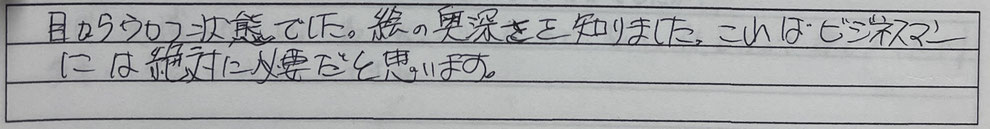 目からウロコ状態でした。絵の奥深さを知りました。これはビジネスマン
には絶対に必要だと思います。